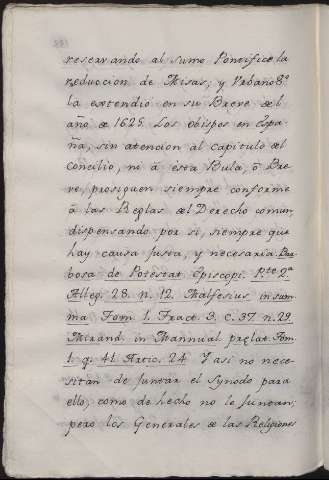 reservando al sumo Pontifice la
reduccion de Misas, y Vrbano 8.º
la extendio en su Breve del
año de 1625. Los obispos en Espa-
ña, sin atencion al Capitulo del
Concilio, ni á esta Bula, ó Bre-
ve, prosiguen siempre conforme
á las Reglas del Derecho comun,
dispensando por si, siempre que
hay causa justa, y necesaria. Bar-
bosa de Potestat. Episcopi. P.te 2.ª
Alleg. 28. n. 12. Malfesius in sum-
ma Tom. 1. Tract. 3. c. 37 n. 29.
Mirand. in Mannual prelat. Tom.
1. q. 41 Artic. 24. Y asi no nece-
sitan de juntar el Synodo para
ello, como de hecho no le juntan;
pero los Generales de las Religiones